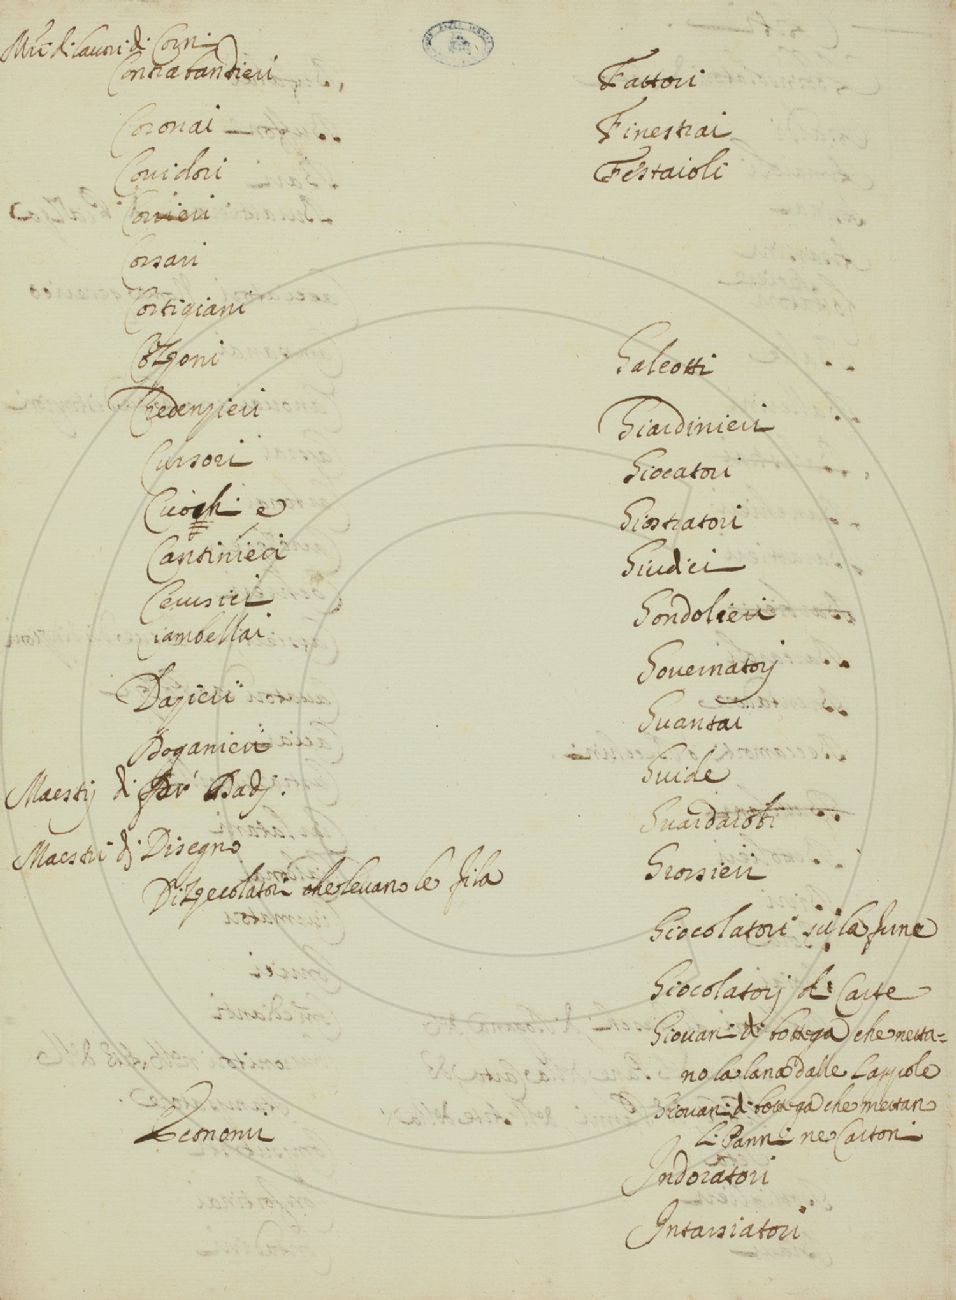 Mri di lauori di Corni
Contrabandieri
Coronai
Corridori
Corrieri
Corsari
Cortigiani
Cozzoni
Credenzieri
Cursori
Cuochi e
Cantinieri
Cerusici
Ciambellai
Dazieri
Doganieri
Maestrj di far Dadj.
Maestri dj Disegno
Dizgecolatori che leuano le fila
Economi
Fattori
Finestrai
Festaioli
Galeotti
Giardinieri
Giocatori
Giostratori
Giudici
Gondolieri
Gouernatorj
Guantai
Guide
Guardarobi
Grorsieri
Giocolatori sù la fune
Giocolatorj di Carte
Giouani di bottega che netta=
no la lana dalle Lappole
Giouani di bottega che mettan
li Panni ne Cartoni
Indoratori
Intarsiatori